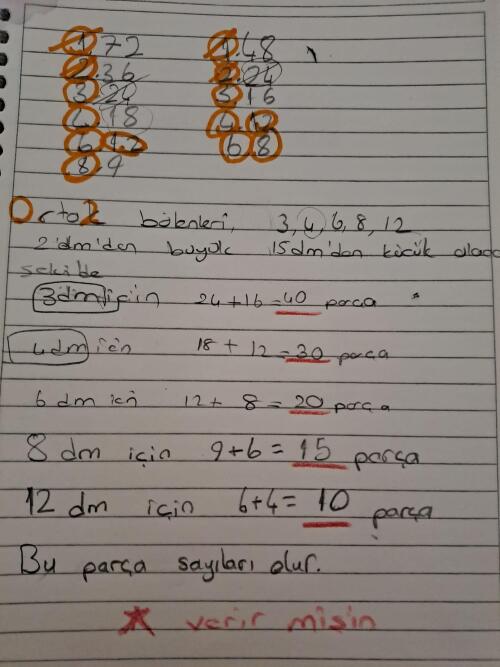 1.72 1.48
2.36 2.24
3.24 3.16
4.18 4.12
6.12 6.8
8.9
Ortak bölenleri, 3, 4, 6, 8, 12
2'dm'den büyük 15dm'den küçük olacak
şekilde
3dm için 24+16=40 parça
4dm için 18+12=30 parça
6 dm icin 12+8=20 parça
8 dm için 9+6=15 parça
12 dm için 6+4=10 parça
Bu parça sayıları olur.
verir misin